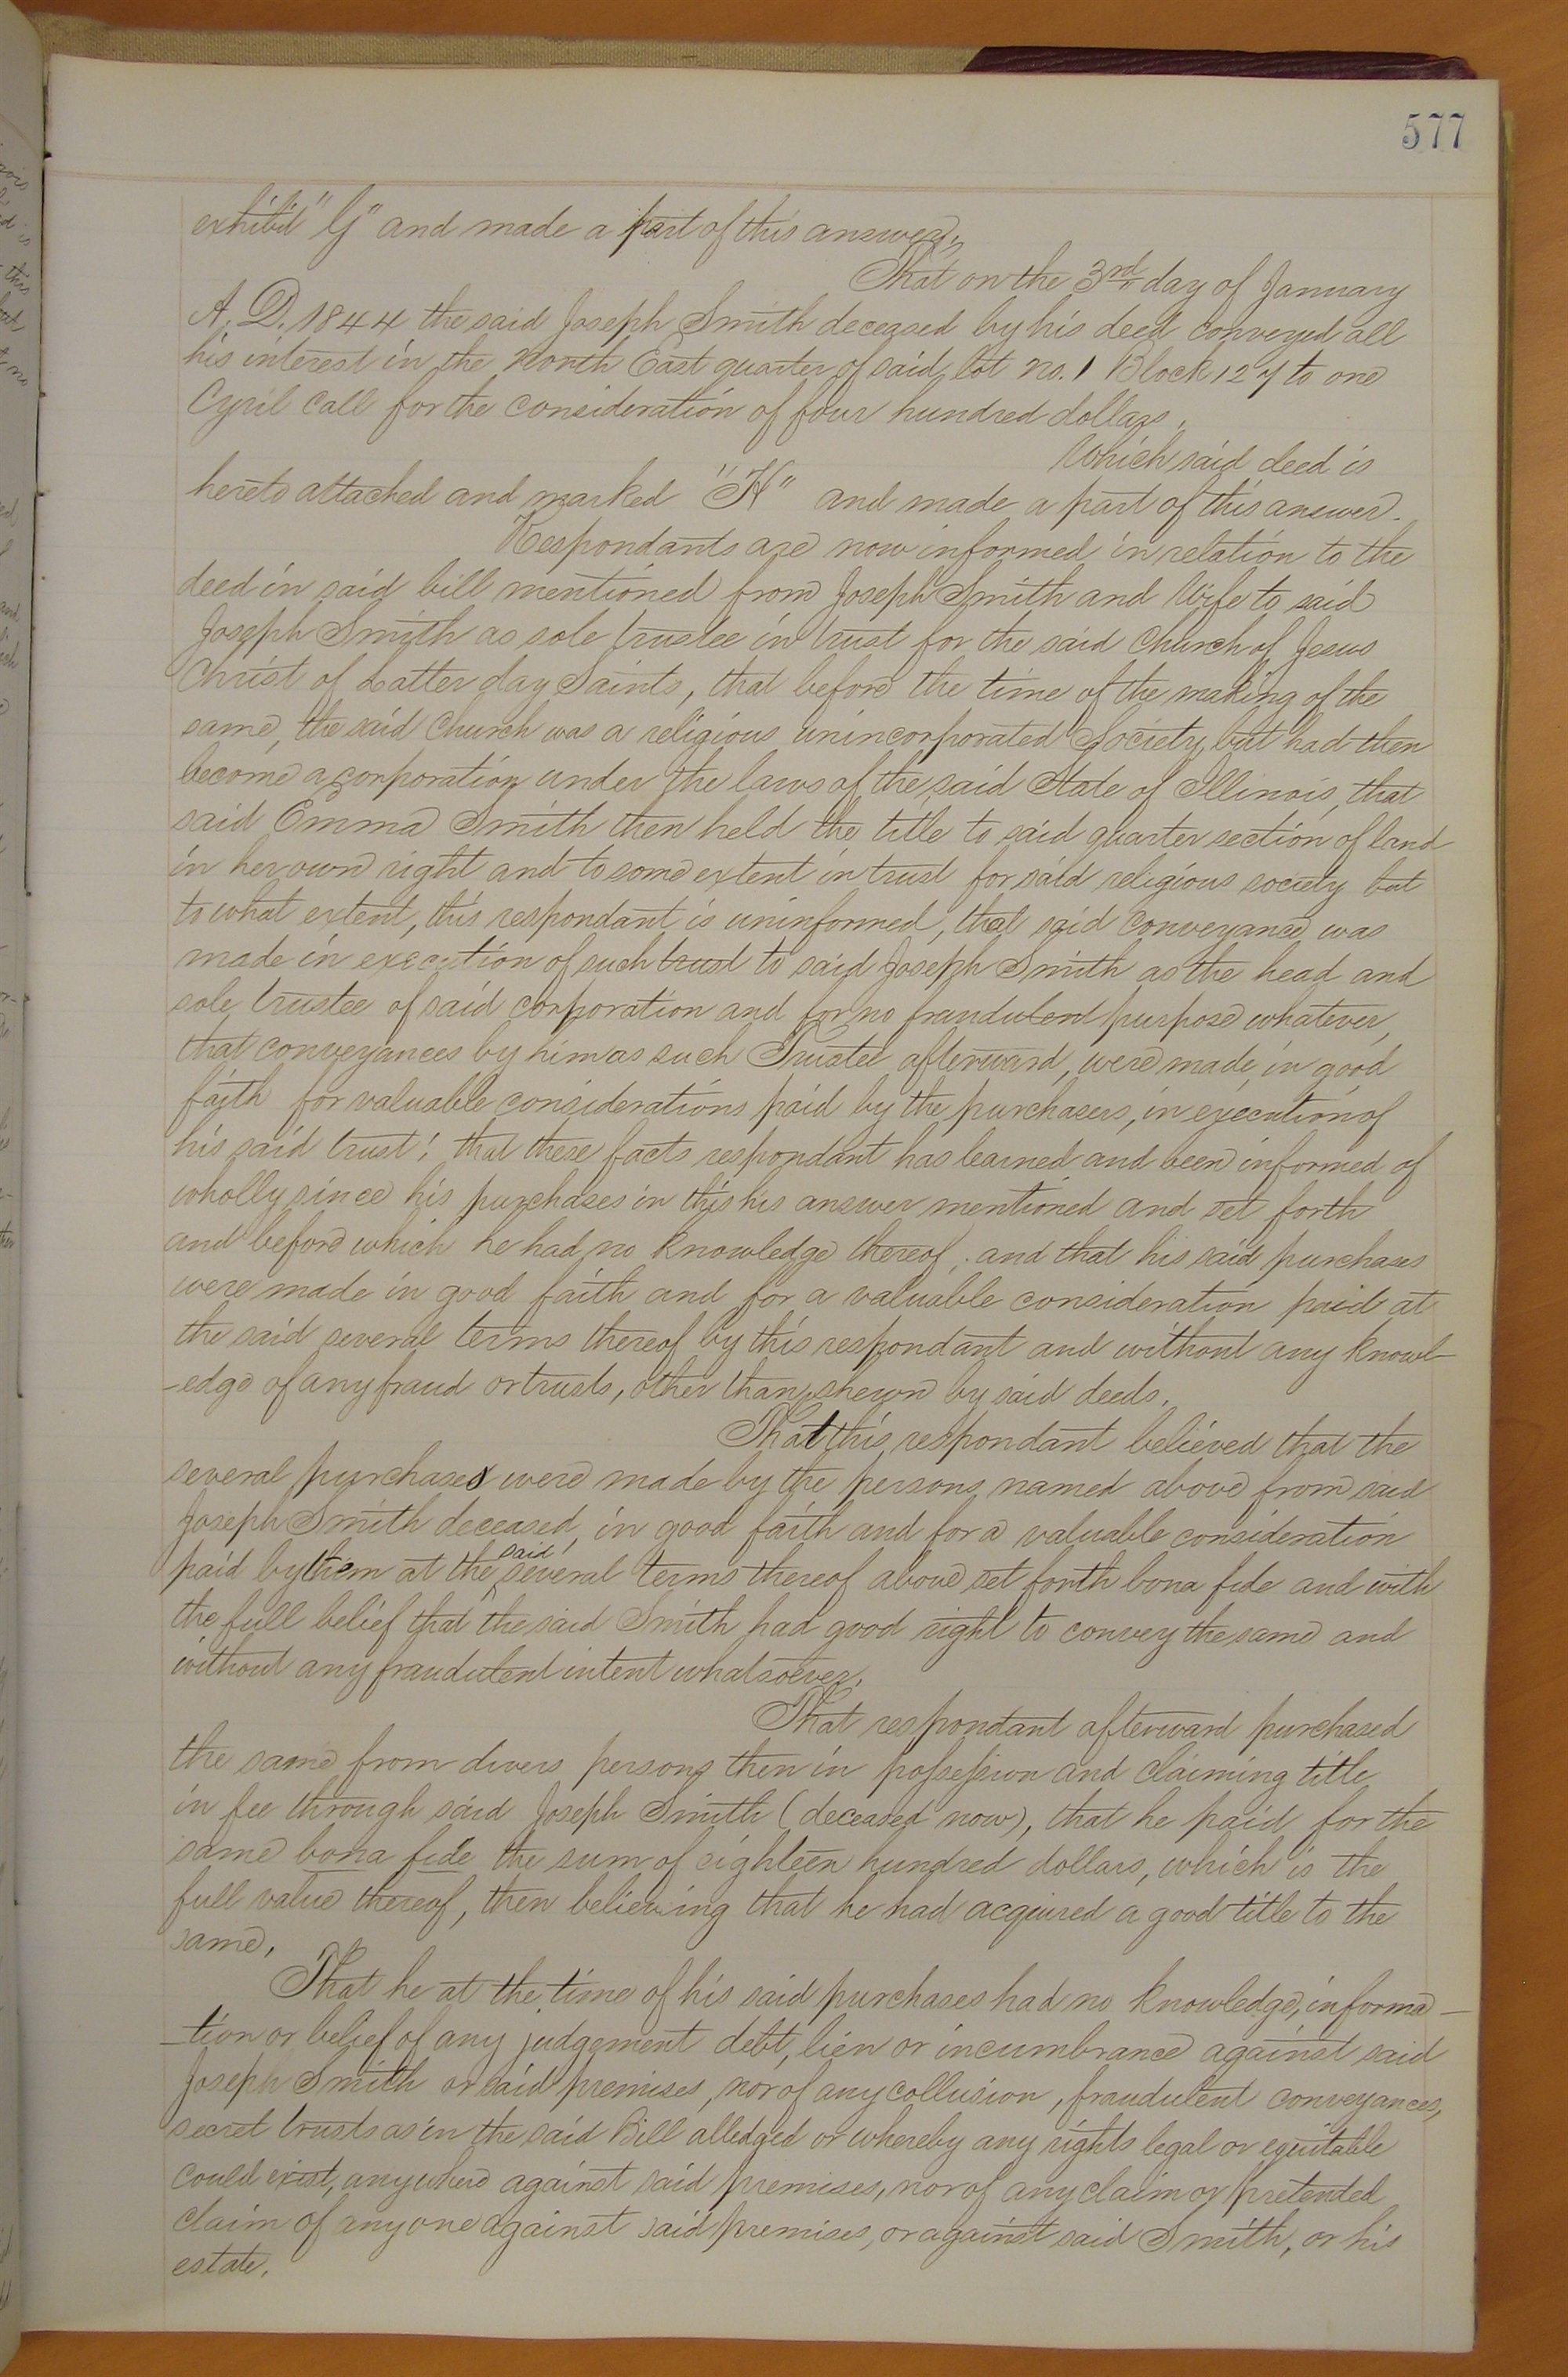 577
exhibit "G" and made a part of this answer.
That on the 3rd day of January
A. D. 1844 the said Joseph Smith deceased by his deed conveyed all
his interest in the North East quarter of said lot No. 1 Block 127 to one
Cyril Call for the consideration of four hundred dollars.
Which said deed is
hereto attached and marked "H" and made a part of this answer.
Respondants are now informed in relation to the
deed in said bill mentioned from Joseph Smith and Wife to said
Joseph Smith as sole trustee in trust for the said Church of Jesus
Christ of Latter day Saints, that before the time of the making of the
same, the said Church was a religious unincorporated Society, but had then
become a corporation under the laws of the said State of Illinois, that
said Emma Smith then held the title to said quarter section of land
in her own right and to some extent in trust for said religious society but
to what extent, this respondant is uninformed, that said conveyance was
made in execution of such trust to said Joseph Smith as the head and
sole trustee of said corporation and for no fraudulent purpose whatever,
that conveyances by him as such Trustee afterward, were made, in good
faith for valuable considerations paid by the purchasers, in execution of
his said trust; that these facts respondant has learned and been informed of
wholly since his purchases in this his answer mentioned and set forth
and before which he had no knowledge thereof; and that his said purchases
were made in good faith and for a valuable consideration paid at
the said several terms thereof by this respondant and without any knowl-
-edge of any fraud or trusts, other than shewn by said deeds.
That this respondant believed that the
several purchases were made by the persons named above from said
Joseph Smith deceased, in good faith and for a valuable consideration
paid by them at the said several terms thereof above set forth bona fide and with
the full belief that the said Smith had good right to convey the same and
without any fraudulent intent whatsoever.
That respondant afterward purchased
the same from divers persons then in possession and claiming title
in fee through said Joseph Smith (deceased now), that he paid for the
same bona fide the sum of eighteen hundred dollars, which is the
full value thereof, then believing that he had acquired a good title to the
same.
That he at the time of his said purchases had no knowledge, informa-
-tion or belief of any judgement debt, lien or incumbrance against said
Joseph Smith or said premises, nor of any collusion, fraudulent conveyances,
secret trusts as in the said Bill alledged or whereby any rights legal or equitable
could exist, anywhere against said premises, nor of any claim or pretended
claim of anyone against said premises, or against said Smith, or his
estate.